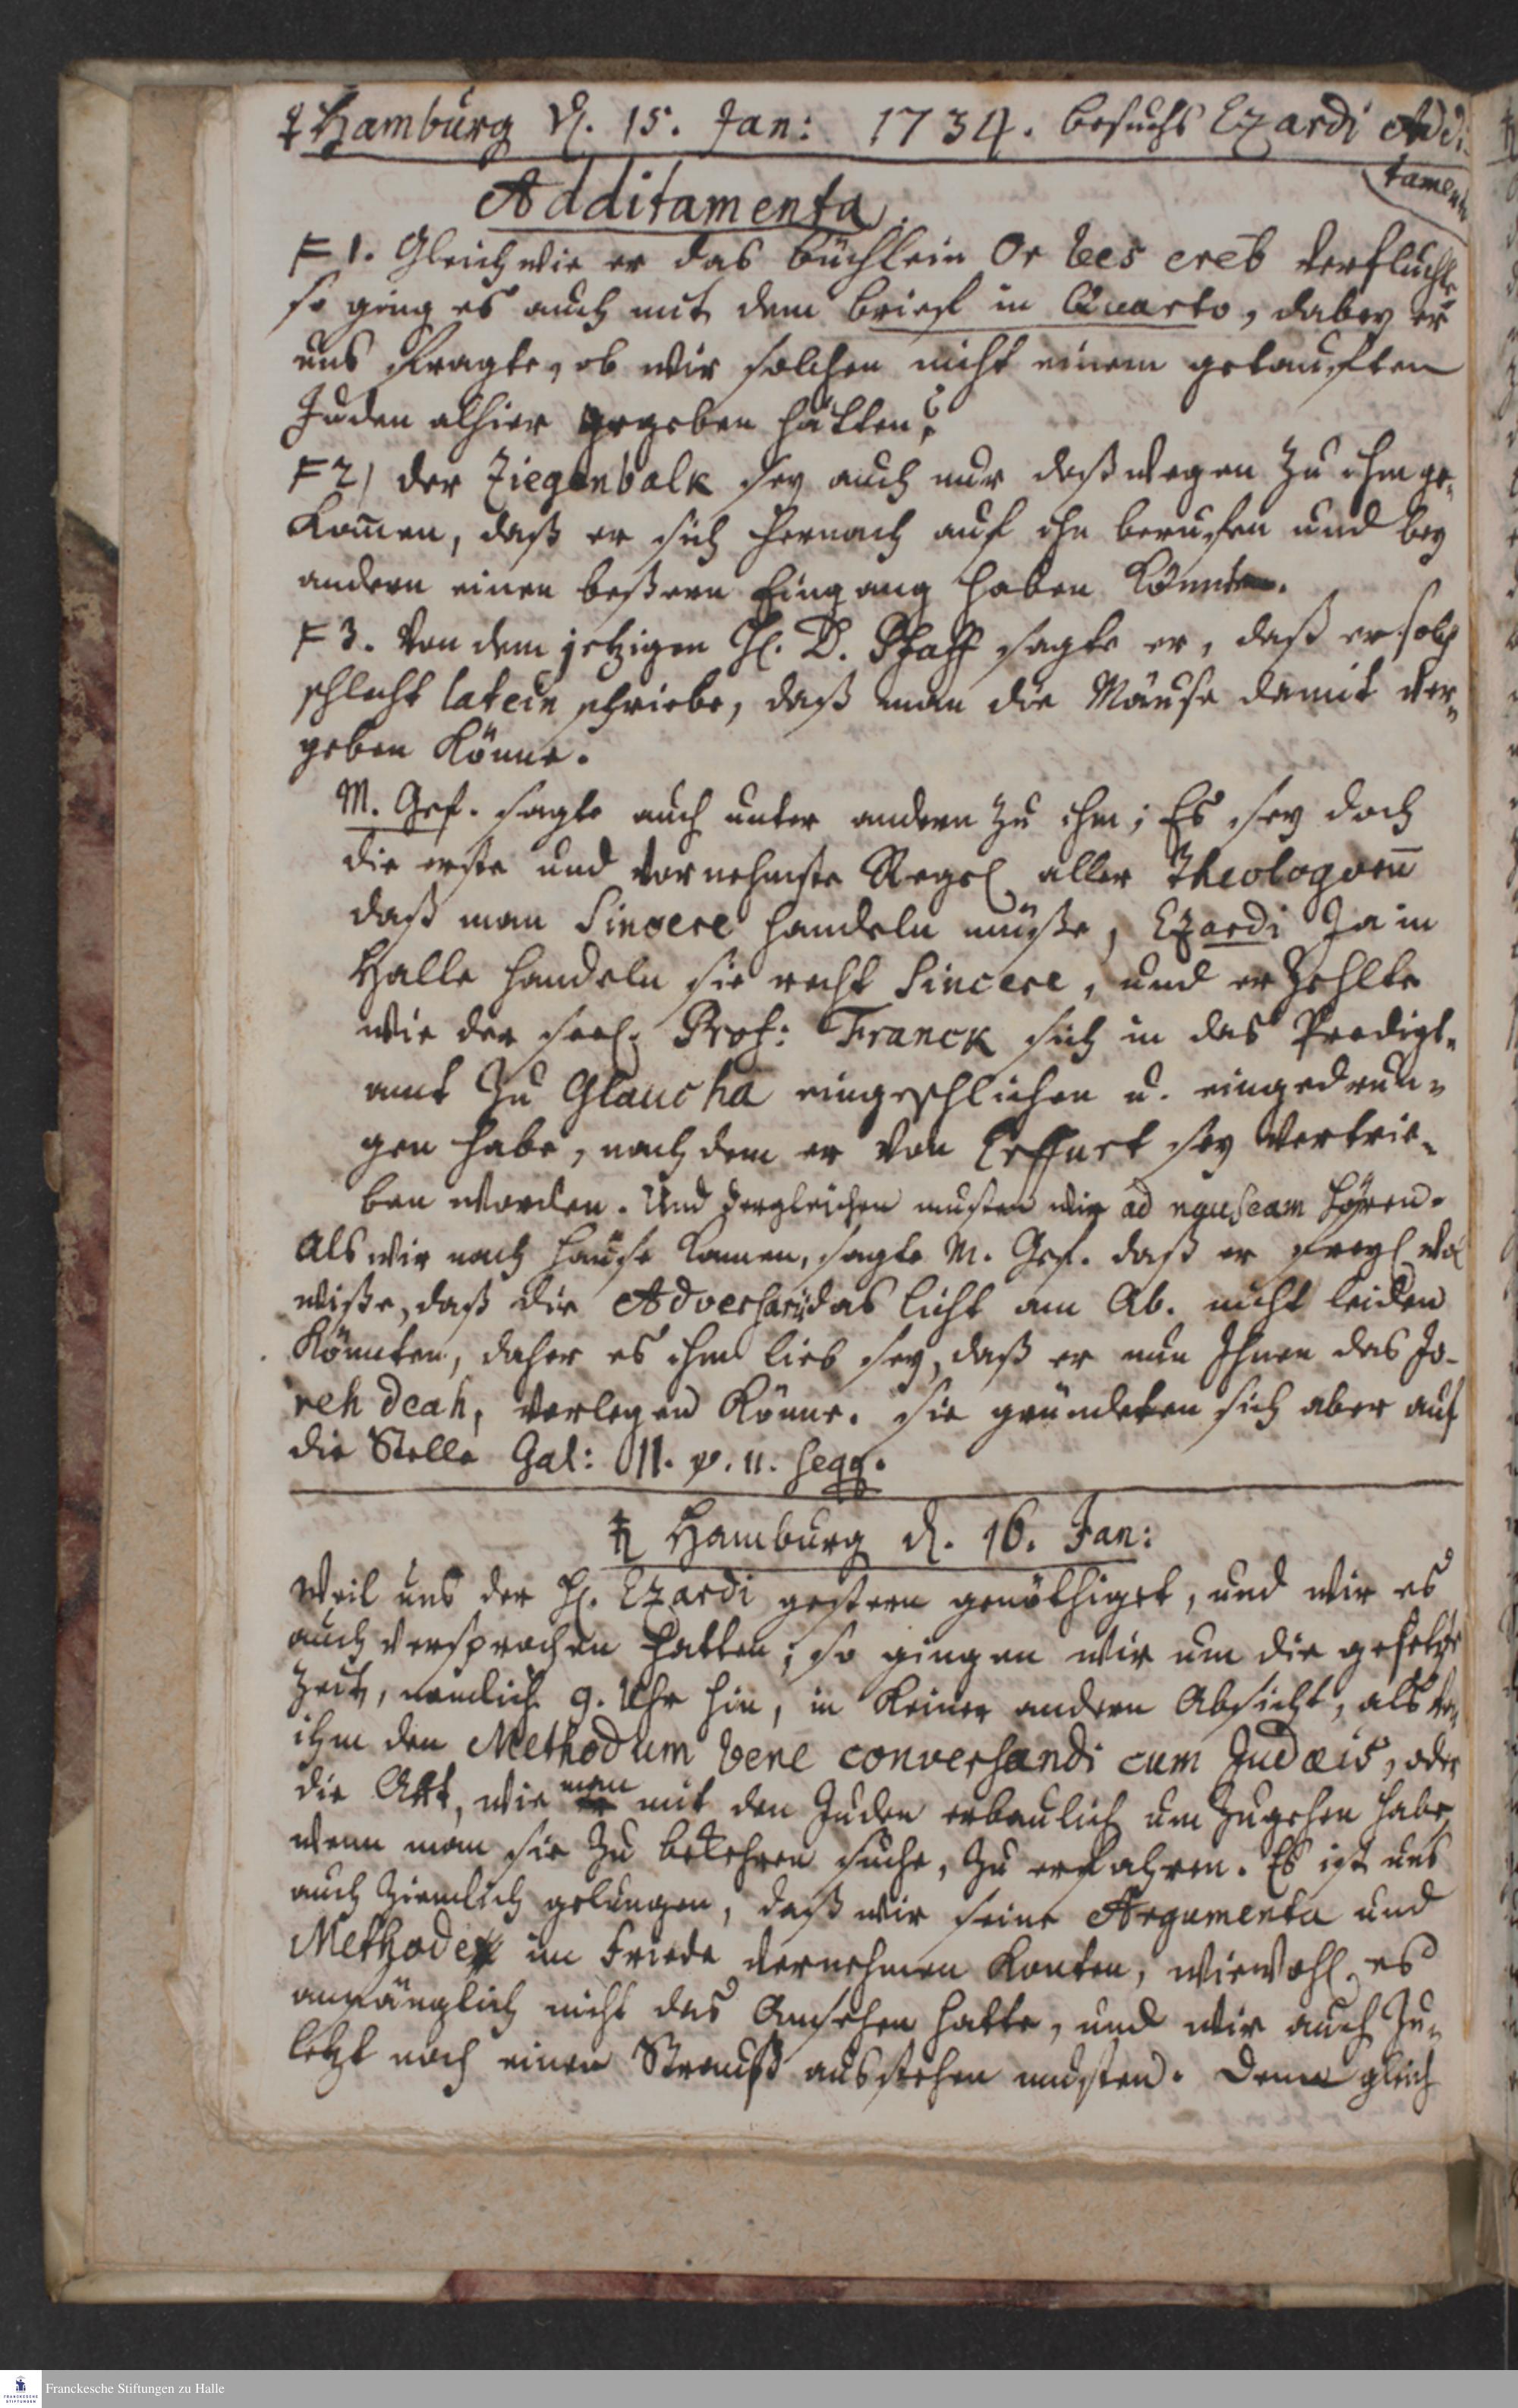 ♀ Hamburg d. 15. Jan: 1734. besuchs Ezardi Addi-
tamenta
Additamenta.
F 1. Gleichwie er das büchlein Or lees ereb verfluchte
so ging es auch mit dem brief in Quarto, dabey er
uns fragte, ob wir solchen nicht einem getaufften
Juden alhier gegeben hätten?
F 2) der Ziegenbalk sey auch nur deßwegen zu ihm ge-
kom̄en, daß er sich hernach auf ihn beruffen und bey
andern einen beßern Eingang haben könnte.
F 3. Von dem jetzigen H. D. Pfaff sagte er, daß er solch
schlecht latein schriebe, daß man die Mäuse damit ver-
geben könne.
M. Gef. sagte auch unter andern zu ihm; Es sey doch
die erste und vornehmste Regel aller Theologorū
daß man Sincere handeln müße, Ezardi Ja in
Halle handeln sie recht Sincere, und erzehlte
wie der seel. Prof: Franck sich in das Predigt-
amt zu Glaucha eingeschlichen u. eingedrun-
gen habe, nachdem er von Erffurt sey vertrie-
ben worden. Und dergleichen musten wir ad nauseam hören.
Als wir nach Hause kamen, sagte M. Gef. daß er
wiße, daß die Adversarii das licht am Ab. nicht leiden
könnten, daher es ihm lieb sey, daß er nun Ihnen das Jo-
reh deah, vorlegen könne. Sie gründeten sich aber auf
die Stelle Gal: II. v. 11. seqq.
♄ Hamburg d. 16. Jan:
Weil uns der H. Ezardi gestern genöthiget, und wir es
auch versprochen hatten, so gingen wir um die gesetzte
Zeit, nemlich 9. Uhr hin, in keiner andern Absicht, als von
ihm den Methodum bene conversandi cum Judæis, oder
die Art, wie man mit den Juden erbaulich umzugehen habe,
wenn man sie zu bekehren suche, zu erfahren. Es ist uns
auch ziemlich gelungen, daß wir seine Argumenta und
Methode im Friede vernehmen konten, wiewohl es
anfänglich nicht das Ansehen hatte, und wir auch zu-
letzt noch einen Strauß ausstehen musten. Denn gleich
Franckesche Stiftungen zu Halle